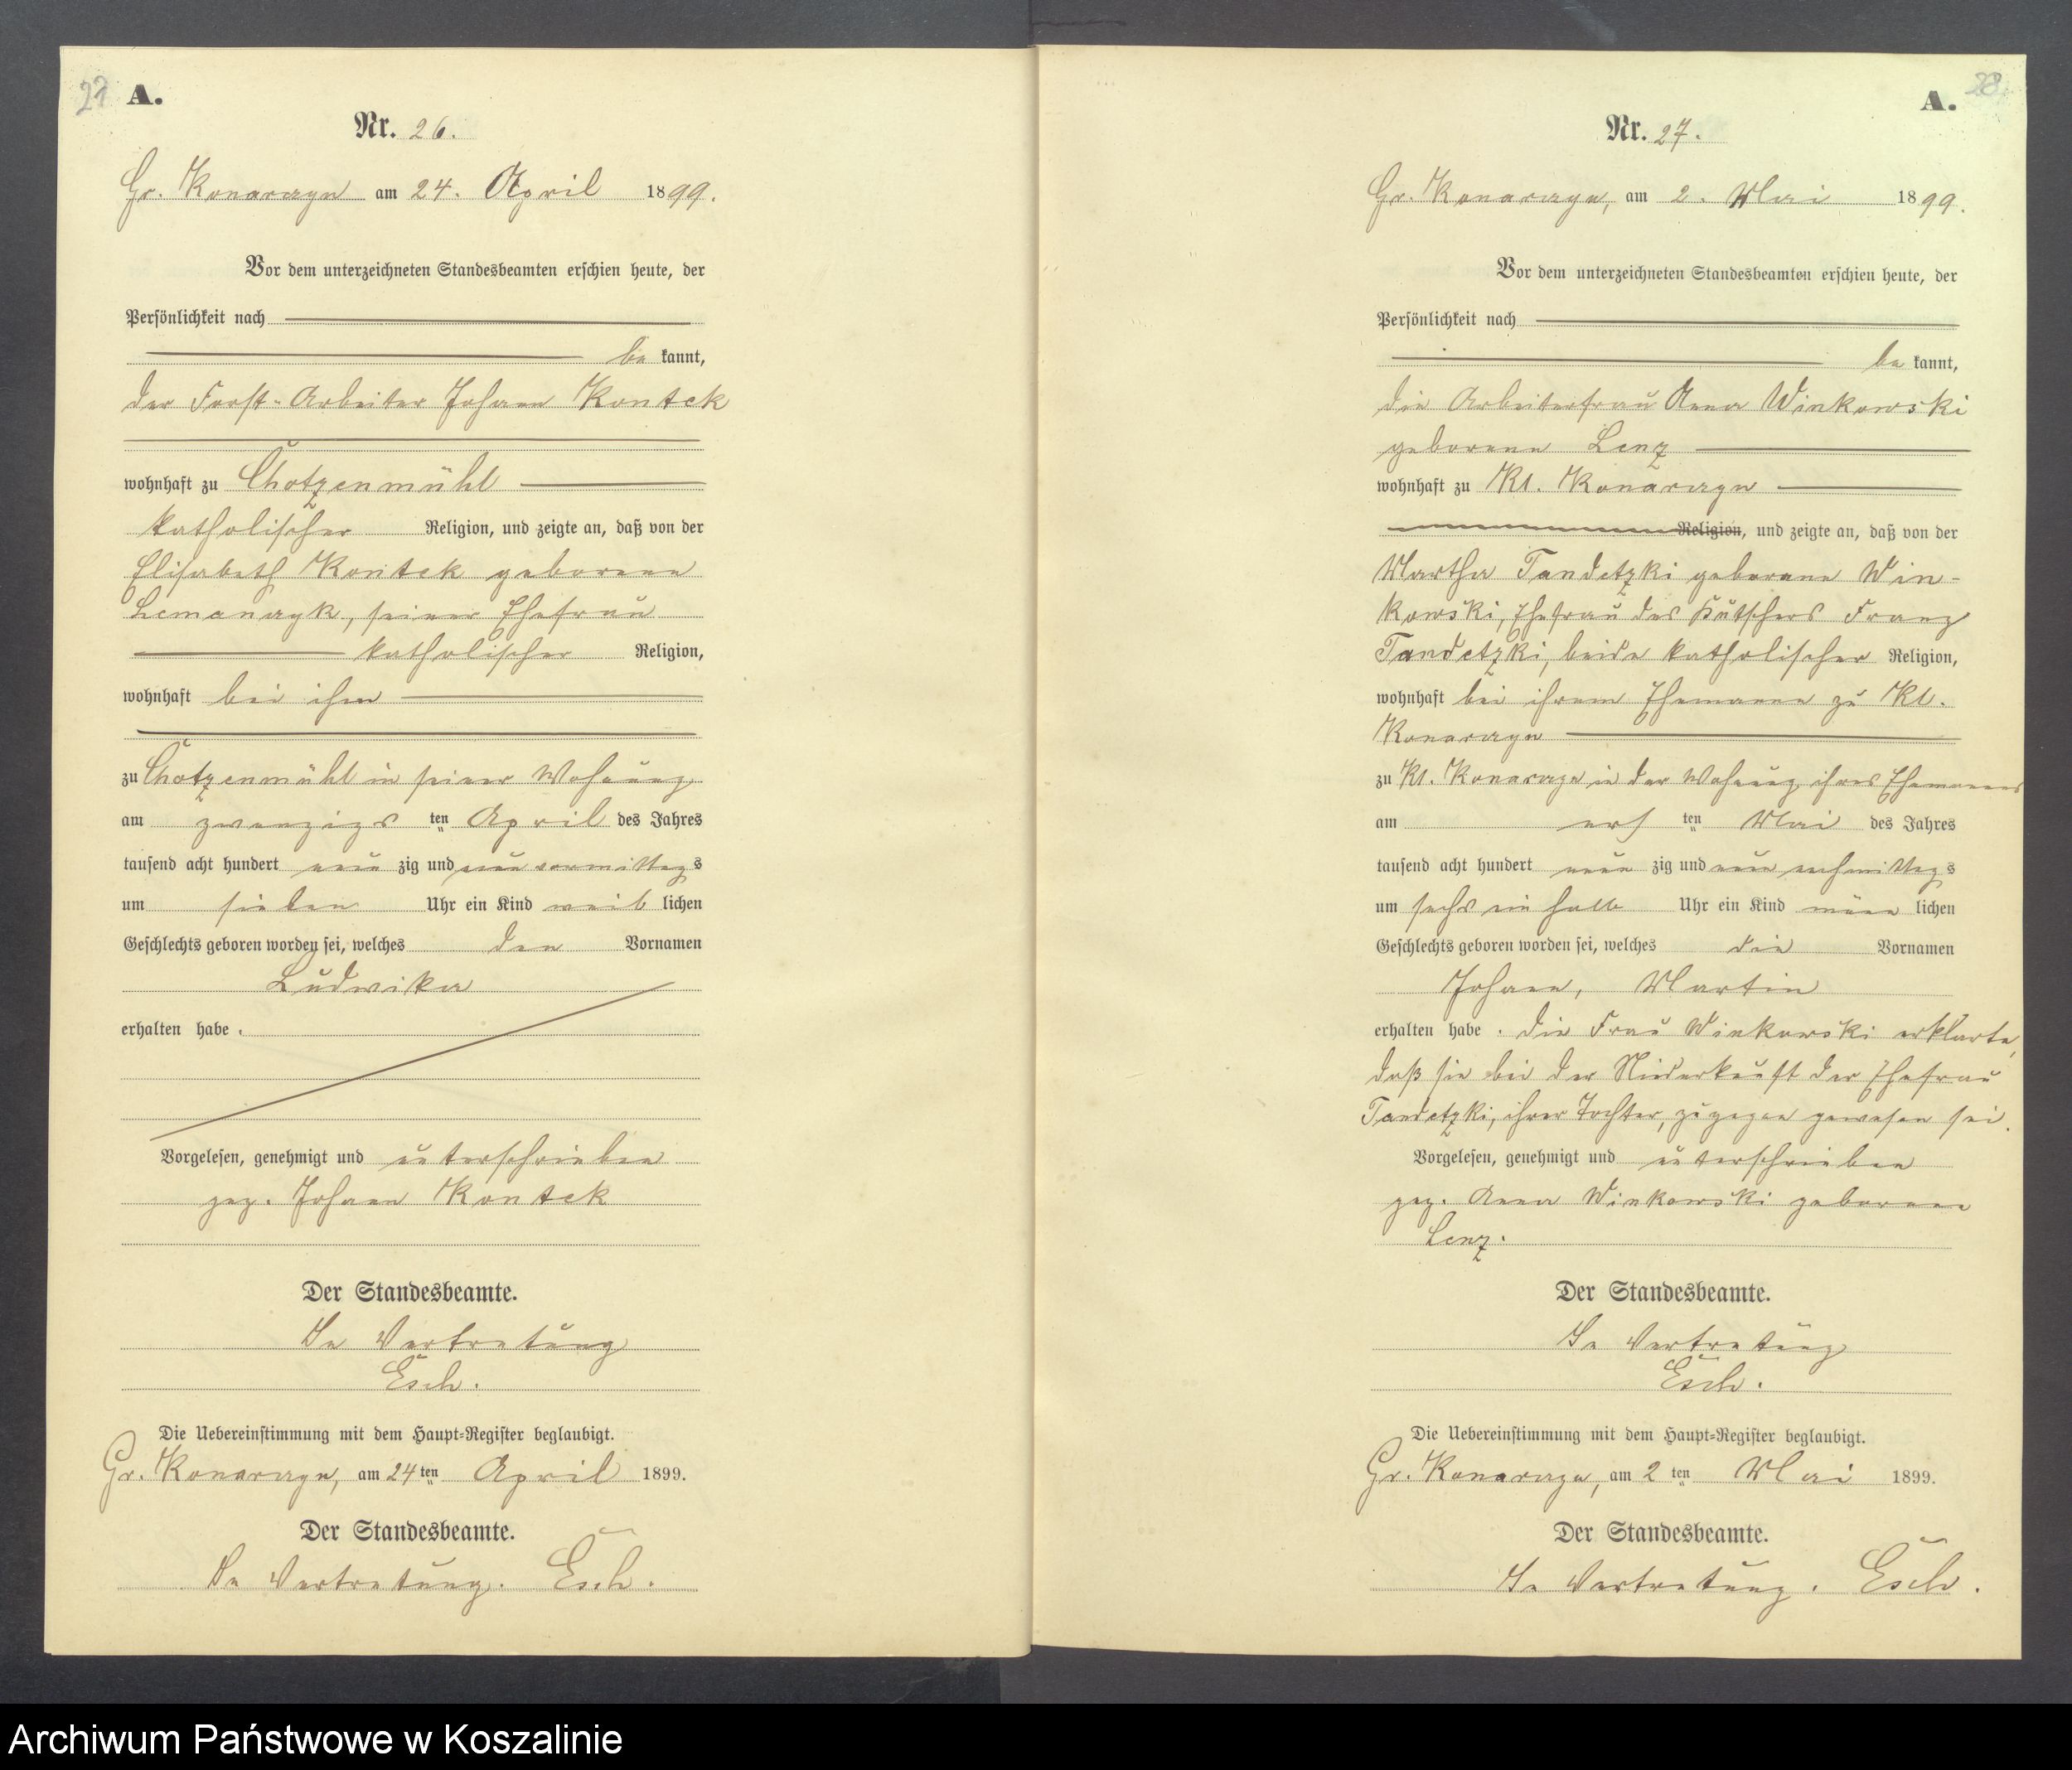 A.
Nr. 26.
Gr. Konarczyn am 24. April 1899.
Vor dem unterzeichneten Standesbeamten erschien heute, der
Persönlichkeit nach
be kannt,
der Forst-Arbeiter Johann Kontek
wohnhaft zu Chotzenmühl
katholischer Religion, und zeigte an, daß von der
Elisabeth Kontek geborene
Lemanczyk, seiner Ehefrau
katholischer Religion,
wohnhaft bei ihm
zu Chotzenmühl in seiner Wohnung
am zwanzigs ten April des Jahres
tausend acht hundert neun zig und neun vormittags
um sieben Uhr ein Kind weib lichen
Geschlechts geboren worden sei, welches den Vornamen
Ludwika
erhalten habe.
Vorgelesen, genehmigt und unterschrieben
gez. Johann Kontek
Der Standesbeamte.
In Vertretung
Esch.
Die Uebereinstimmung mit dem Haupt-Register beglaubigt.
Gr. Konarczyn, am 24ten April 1899.
Der Standesbeamte.
In Vertretung. Esch.
A.
Nr. 27.
Gr. Konarczyn, am 2. Mai 1899.
Vor dem unterzeichneten Standesbeamten erschien heute, der
Persönlichkeit nach
be kannt,
die Arbeiterfrau Anna Winkowski
geborene Lenz
wohnhaft zu Kl. Konarczyn
Religion, und zeigte an, daß von der
Martha Tandetzki geborene Win-
kowski, Ehefrau des Kutschers Franz
Tandetzki, beide katholischer Religion,
wohnhaft bei ihrem Ehemanne zu Kl.
Konarczyn
zu Kl. Konarczyn in der Wohnung ihres Ehemannes
am ers ten Mai des Jahres
tausend acht hundert neun zig und neun nachmittags
um sechs ein halb Uhr ein Kind männ lichen
Geschlechts geboren worden sei, welches die Vornamen
Johann, Martin
erhalten habe. Die Frau Winkowski erklärte,
daß sie bei der Niederkunft der Ehefrau
Tandetzki, ihrer Tochter, zugegen gewesen sei.
Vorgelesen, genehmigt und unterschrieben
gez. Anna Winkowski geborene
Lenz.
Der Standesbeamte.
In Vertretung
Esch.
Die Uebereinstimmung mit dem Haupt-Register beglaubigt.
Gr. Konarczyn, am 2 ten Mai 1899.
Der Standesbeamte.
In Vertretung. Esch.
Archiwum Państwowe w Koszalinie